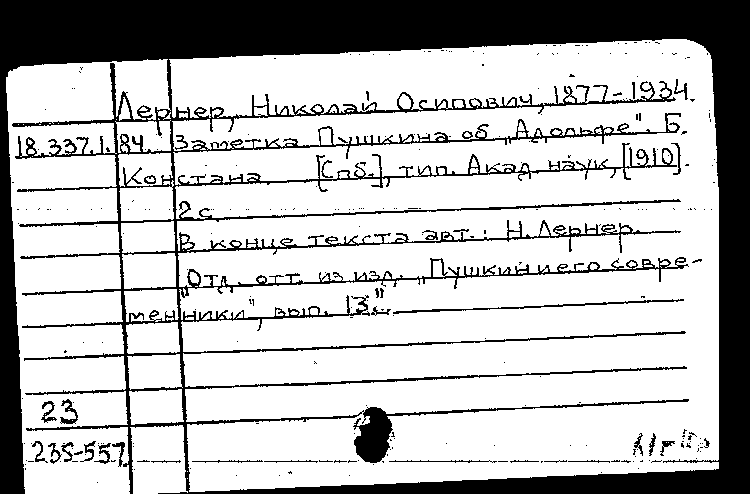 Лернер, Николай Осипович, 1877-1934.
18.337.1.84. Заметка Пушкина об „Адольфе“. Б.
Констана. [Спб.], тип. Акад. наук, [1910].
2 с.
В конце текста авт.: Н. Лернер.
„Отд. отт. из изд. „Пушкин и его совре-
менники“, вып. 13“.
23
235-557